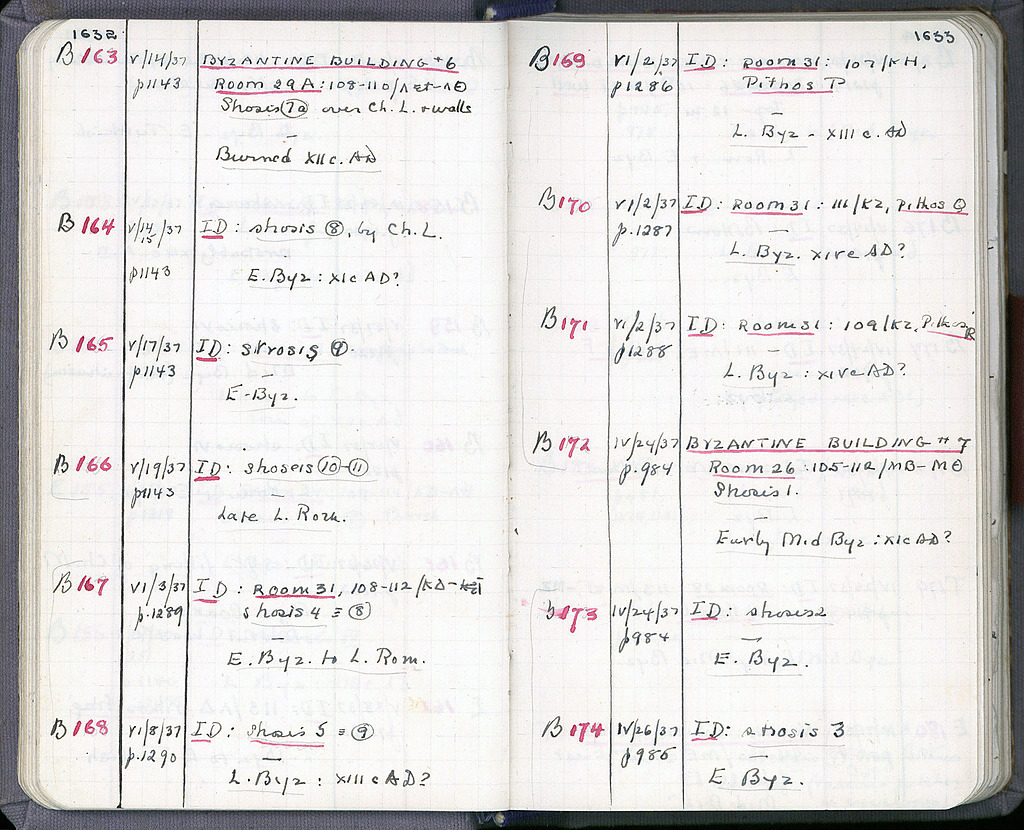 1632
B 163 V/14/37 BYZANTINE BUILDING #6
p1143 Room 29A: 108-110/ΛΣΤ-ΛΘ
Shosis 7a over Ch. L. + walls
—
Burned XII c. AD
B 164 V/14,15/37 ID: shosis 8, by Ch. L.
p1143 E. Byz: XI c AD?
B 165 V/17/37 ID: strosis 9.
p1143
E-Byz.
B 166 V/19/37 ID: shoseis 10-11
p1143
Late L. Rom.
B 167 VI/3/37 ID: Room 31, 108-112/ΚΔ-ΚΣΤ
p.1289 shosis 4 ≡ 8
E. Byz. to L. Rom.
B 168 VI/8/37 ID: shosis 5 ≡ 9
p.1290 —
L. Byz: XIII c AD?
1633
B 169 VI/2/37 ID: Room 31: 107/ΚΗ,
p1286 Pithos P
—
L. Byz - XIII c. AD
B 170 VI/2/37 ID: Room 31: 111/ΚΖ, Pithos Q
p.1287 —
L. Byz. XIV c AD?
B 171 VI/2/37 ID: Room 31: 109/ΚΖ, Pithos R
p1288 —
L. Byz: XIV c AD?
B 172 IV/24/37 BYZANTINE BUILDING #7
p.984 Room 26: 105-112/ΜΒ-ΜΘ
Shosis 1.
—
Early Mid Byz: XI c AD?
B 173 IV/24/37 ID: shosis 2
p984 —
E. Byz.
B 174 IV/26/37 ID: strosis 3
p985 —
E Byz.